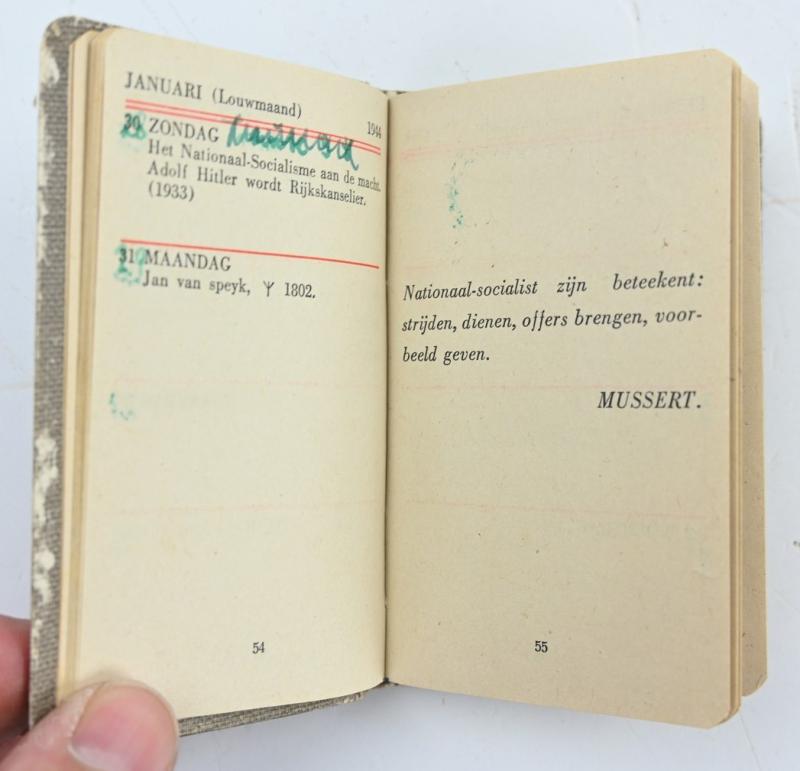 JANUARI (Louwmaand) 1944
30 ZONDAG
Het Nationaal-Socialisme aan de macht.
Adolf Hitler wordt Rijkskanselier.
(1933)
31 MAANDAG
Jan van speyk, ᛣ 1802.
54
Nationaal-socialist zijn beteekent:
strijden, dienen, offers brengen, voor-
beeld geven.
MUSSERT.
55